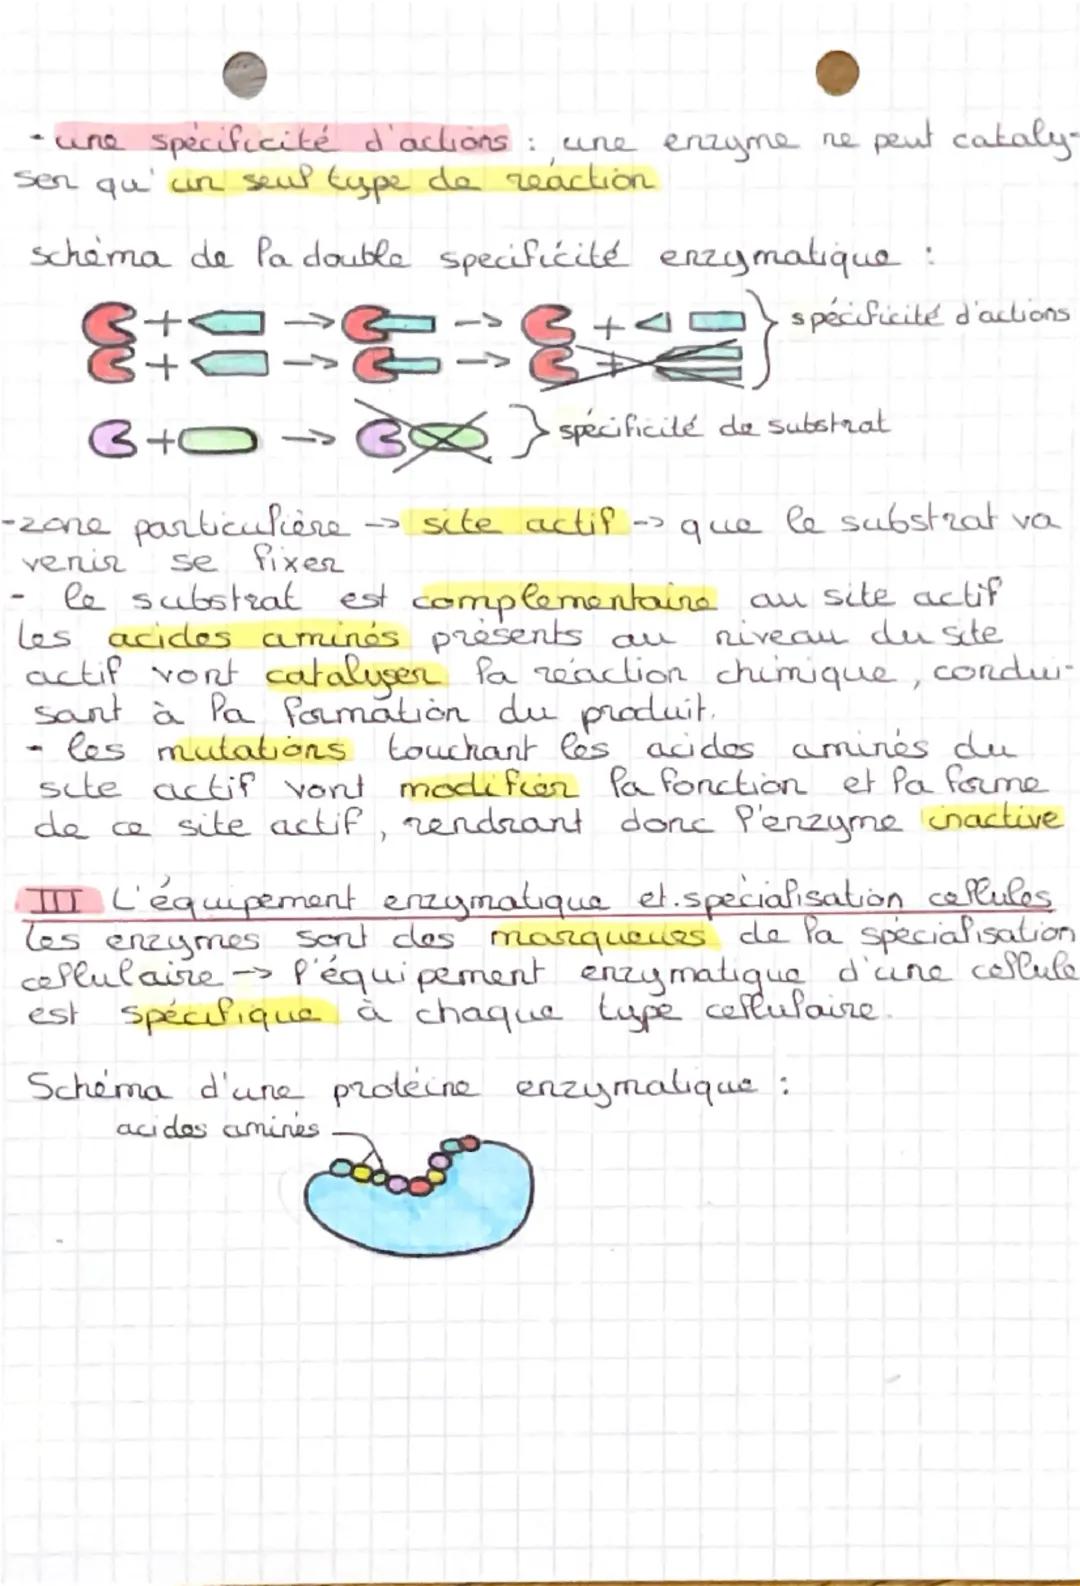 - une spécificité d'actions : une enzyme ne peut cataly-
ser qu'un seul type de réaction
schéma de la double specificité enzymatique :
+ → → + } spécificité d'actions
+ → → +
+ → } spécificité de substrat
-zone particulière → site actif → que le substrat va
venir se fixer
- le substrat est complémentaire au site actif
Les acides aminés présents au niveau du site
actif vont catalyser la réaction chimique, condui-
sant à la formation du produit.
- les mutations touchant les acides aminés du
site actif vont modifier la fonction et la forme
de ce site actif, rendrant donc l'enzyme inactive
III L'équipement enzymatique et.spécialisation cellules
Les enzymes sont des marqueurs de la spécialisation
cellulaire → l'équipement enzymatique d'une cellule
est spécifique à chaque type cellulaire.
Schéma d'une protéine enzymatique :
acides aminés